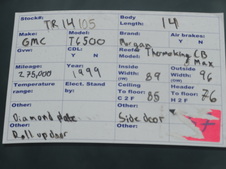 Stock#: TR14105 Body Length: 14
Make: GMC Model: T6500 Brand: Morgan Air brakes? Y N
Gvw: CDL: Y N Reefer Model: Thermoking CB Max
Mileage: 275,000 Year: 1999 Inside Width: 89 Outside Width: 96
Temperature range: Elect. Stand by: Ceiling To floor: C 2 F 85 Header To floor: H 2 F 76
Other: Diamond plate Other: Side door Other:
Other: Roll up door